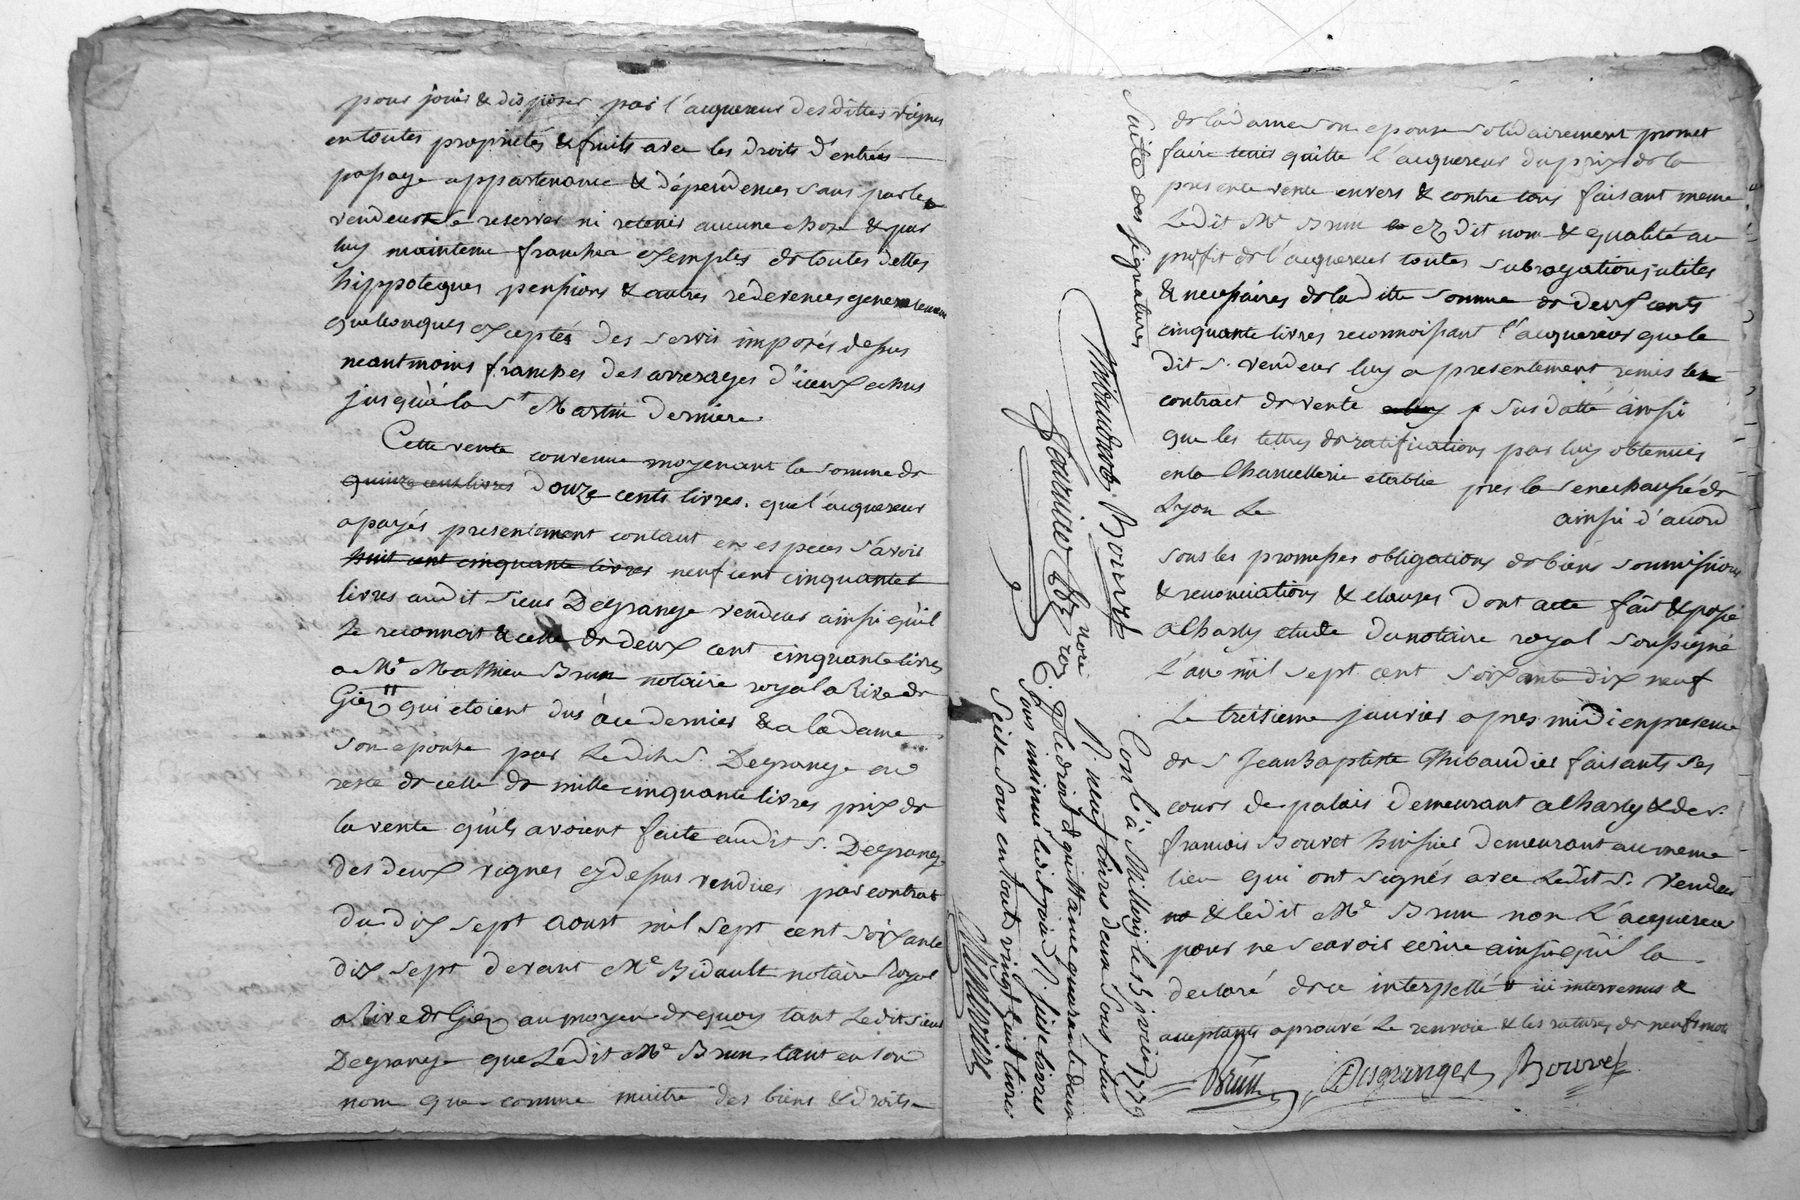 pour jouir & disposer par l'acquereur desdittes vignes
en toutes proprietés & fruits avec les droits d'entrées
passage appartenance & dépendences sans par le
vendeur se reserver ni retenir aucune chose & par
luy maintenue franches exemptes de toutes dettes
hippoteques pensions & autres redevences generalement
quelconques exceptés des servis imposés dessus
neantmoins franches des arrerages d'iceux echus
jusqu'à la St Martin derniere
Cette vente convenue moyenant la somme de
quinze cens livres douze cents livres. que l'acquereur
a payés presentement contant en especes savoir
huit cent cinquante livres neuf cent cinquante
livres audit sieur Degrange vendeur ainsi qu'il
le reconnoit & celle de deux cent cinquante livres
a Me Mathieu Brun notaire royal a Rive de
Giez qui étoient dus au dernier & a la dame
son epouse par ledit S. Degrange au
reste de celle de mille cinquante livres prix de
la vente qu'ils avoient faite audit S. Degrange
des deux vignes cy dessus vendues par contrat
du dix sept aoust mil sept cent soixante
dix sept devant Me Bidault notaire Royal
a Rive de Giez au moyen de quoy tant ledit sieur
Degrange que ledit Me Brun tant en son
nom que comme maitre des biens & droits
de la dame son epouse solidairement promet
faire tenir quitte l'acquereur du prix de la
presente vente envers & contre tous faisant meme
ledit Me Brun ez dit nom & qualité au
profit de l'acquereur toutes subrogations utiles
& necessaires de la ditte somme de deux cents
cinquante livres reconnoissant l'acquereur que le
dit S. vendeur luy a presentement remis le
contract de vente susdatté ainsi
que les lettres de ratifications par luy obtenues
en la Chancellerie etablie pres la senechaussée de
Lyon le ainsi d'accord
sous les promesses obligations de biens soumissions
& renonciations & clauses dont acte fait & passé
a Charly etude du notaire royal soussigné
L'an mil sept cent soixante dix neuf
le treisieme janvier apres midi en presence
de S Jean Baptiste Thibaudier faisants ses
cours de palais demeurant a Charly & de S.
francois Bouvet huissier demeurant au meme
lieu qui ont signés avec ledit S. vendeur
& ledit Me Brun non l'acquereur
pour ne scavoir ecrire ainsi qu'il la
declaré de ce interpellé ici intervenus &
acceptants aprouvé le renvoie & les ratures de neuf mots
Brun Desgranges Bouvet
Suite des signatures
Thibaudier Bouvet
Con.lé à Millery le 15 janvier 1779
R. neuf livres deux sous plus
pr le droit de quittance quarante deux
sous insinué ledit jour R. seise livres
Seise sous en tout vingt huit livres